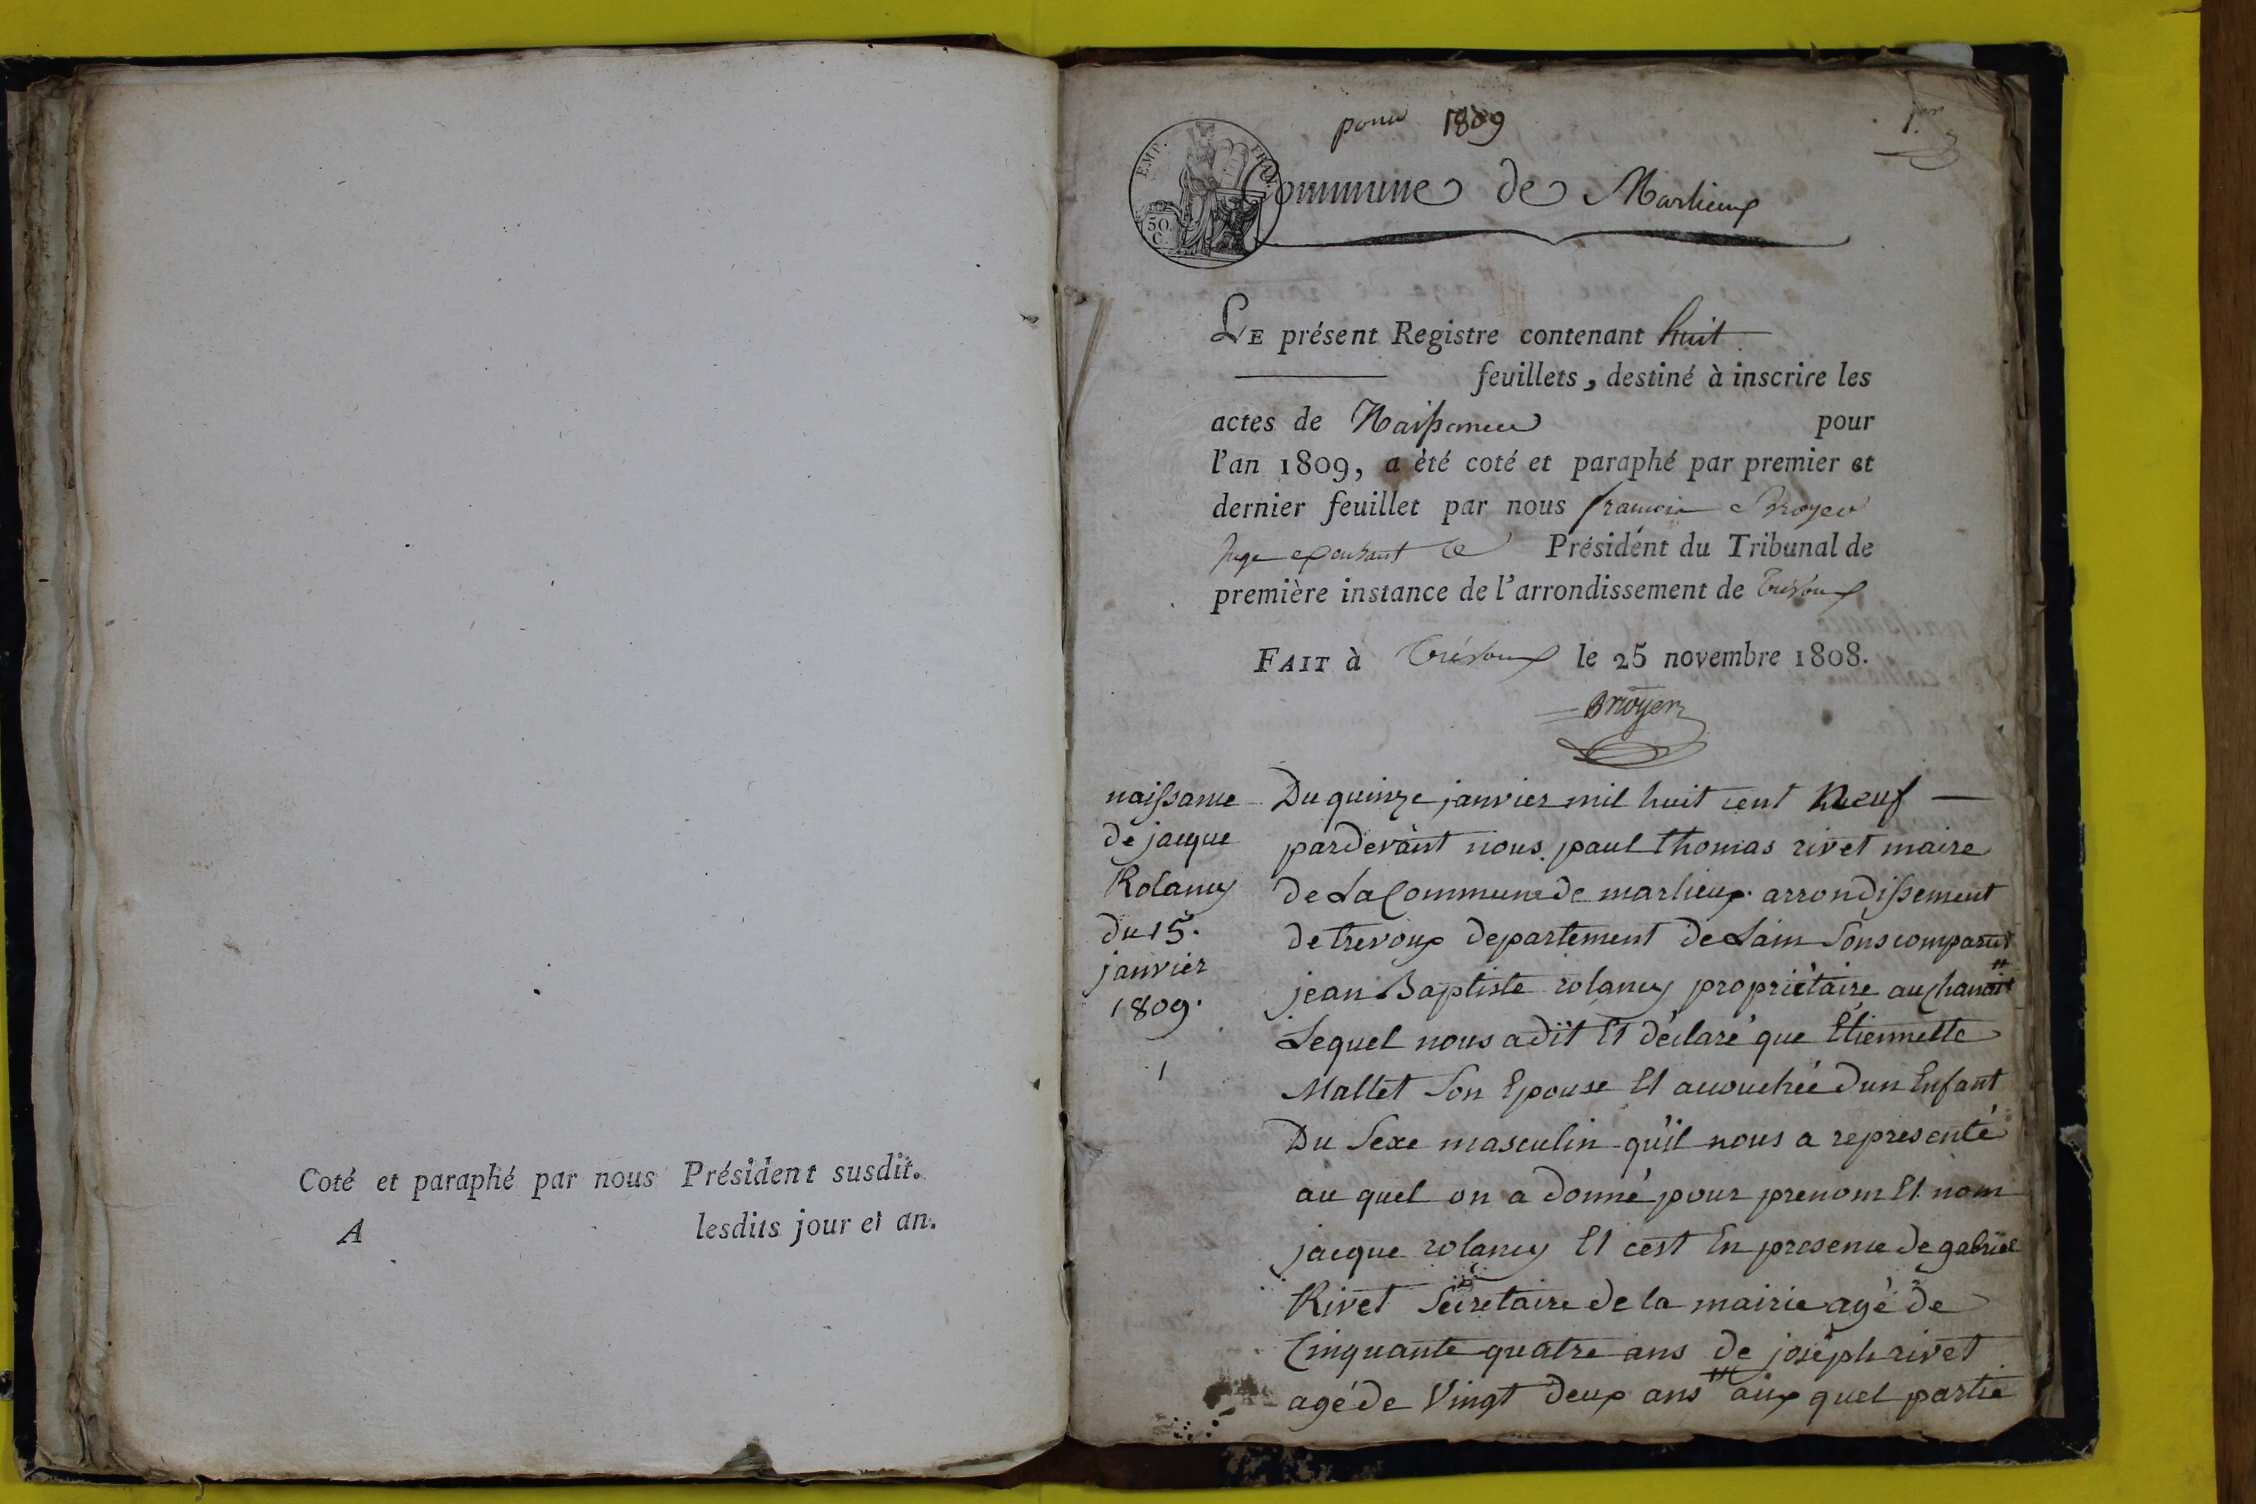 Coté et paraphé par nous Président susdit.
A lesdits jour et an.
pour 1809
1.er
EMP. FRAN.
50
C.
Commune de Marlieux
LE présent Registre contenant huit
feuillets, destiné à inscrire les
actes de Naissance pour
l'an 1809, a été coté et paraphé par premier et
dernier feuillet par nous francois Broyer
Juge Président du Tribunal de
première instance de l'arrondissement de Trévoux
FAIT à Trévoux le 25 novembre 1808.
Broyer
naissance
de jacque
Rolancy
du 15.
janvier
1809.
1
Du quinze janvier mil huit cent Neuf
pardevant nous paul thomas rivet maire
de La Commune de marlieux arrondissement
de trevoux departement de Lain Sons comparut
jean Baptiste rolancy propriétaire au
Lequel nous a dit Et déclaré que Etiennette
Mallet Son Epouse Et accouchée dun Enfant
Du Sexe masculin qu'il nous a representé
au quel on a donné pour prenom Et nom
jacque rolancy Et cest En presence de gabriel
Rivet Secretaire de la mairie agé de
Cinquante quatre ans de joseph rivet
agé de Vingt deux ans aux quel partie